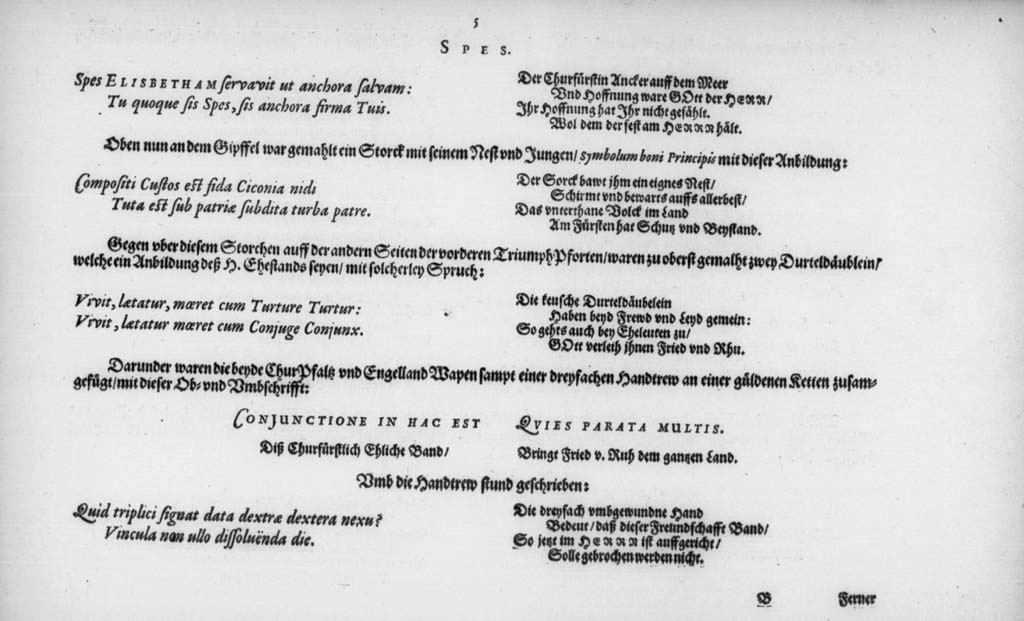 5
SPES.
Spes ELISBETHAM servavit ut anchora salvam:
Tu quoque sis Spes, sis anchora firma Tuis.
Der Churfürstin Ancker auff dem Meer
Vnd Hoffnung ware GOtt der HERR/
Ihr Hoffnung hat Ihr nicht gefählt.
Wol dem der fest am HERRN hält.
Oben nun an dem Gipffel war gemahlt ein Storck mit seinem Nest vnd Jungen/ symbolum boni Principis mit dieser Anbildung:
Compositi Custos est fida Ciconia nidi
Tuta est sub patriæ subdita turba patre.
Der Sorck bawt jhm ein eignes Nest/
Schirmt vnd bewarts auffs allerbest/
Das vnterthane Volck im Land
Am Fürsten hat Schutz vnd Beystand.
Gegen vber diesem Storchen auff der andern Seiten der vorderen TriumphPforten/ waren zu oberst gemalht zwey Durteldäublein/
welche ein Anbildung deß H. Ehestands seyen/ mit solcherley Spruch:
Vivit, lætatur, mœret cum Turture Turtur:
Vivit, lætatur mœret cum Conjuge Conjunx.
Die keusche Durteldäubelein
Haben beyd Frewd vnd Leyd gemein:
So gehts auch bey Eheleuten zu/
GOtt verleih jhnen Fried vnd Rhu.
Darunder waren die beyde ChurPfaltz vnd Engelland Wapen sampt einer dreyfachen Handtrew an einer güldenen Ketten zusam-
gefügt/ mit dieser Ob- vnd Vmbschrifft:
CONJUNCTIONE IN HAC EST QVIES PARATA MULTIS.
Diß Churfürstlich Ehliche Band/ Bringt Fried v. Ruh dem gantzen Land.
Vmb die Handtrew stund geschrieben:
Quid triplici signat data dextræ dextera nexu?
Vincula non ullo dissoluënda die.
Die dreyfach vmbgewundne Hand
Bedeut/ daß dieser Freundschafft Band/
So jetzt im HERRN ist auffgericht/
Solle gebrochen werden nicht.
B Ferner